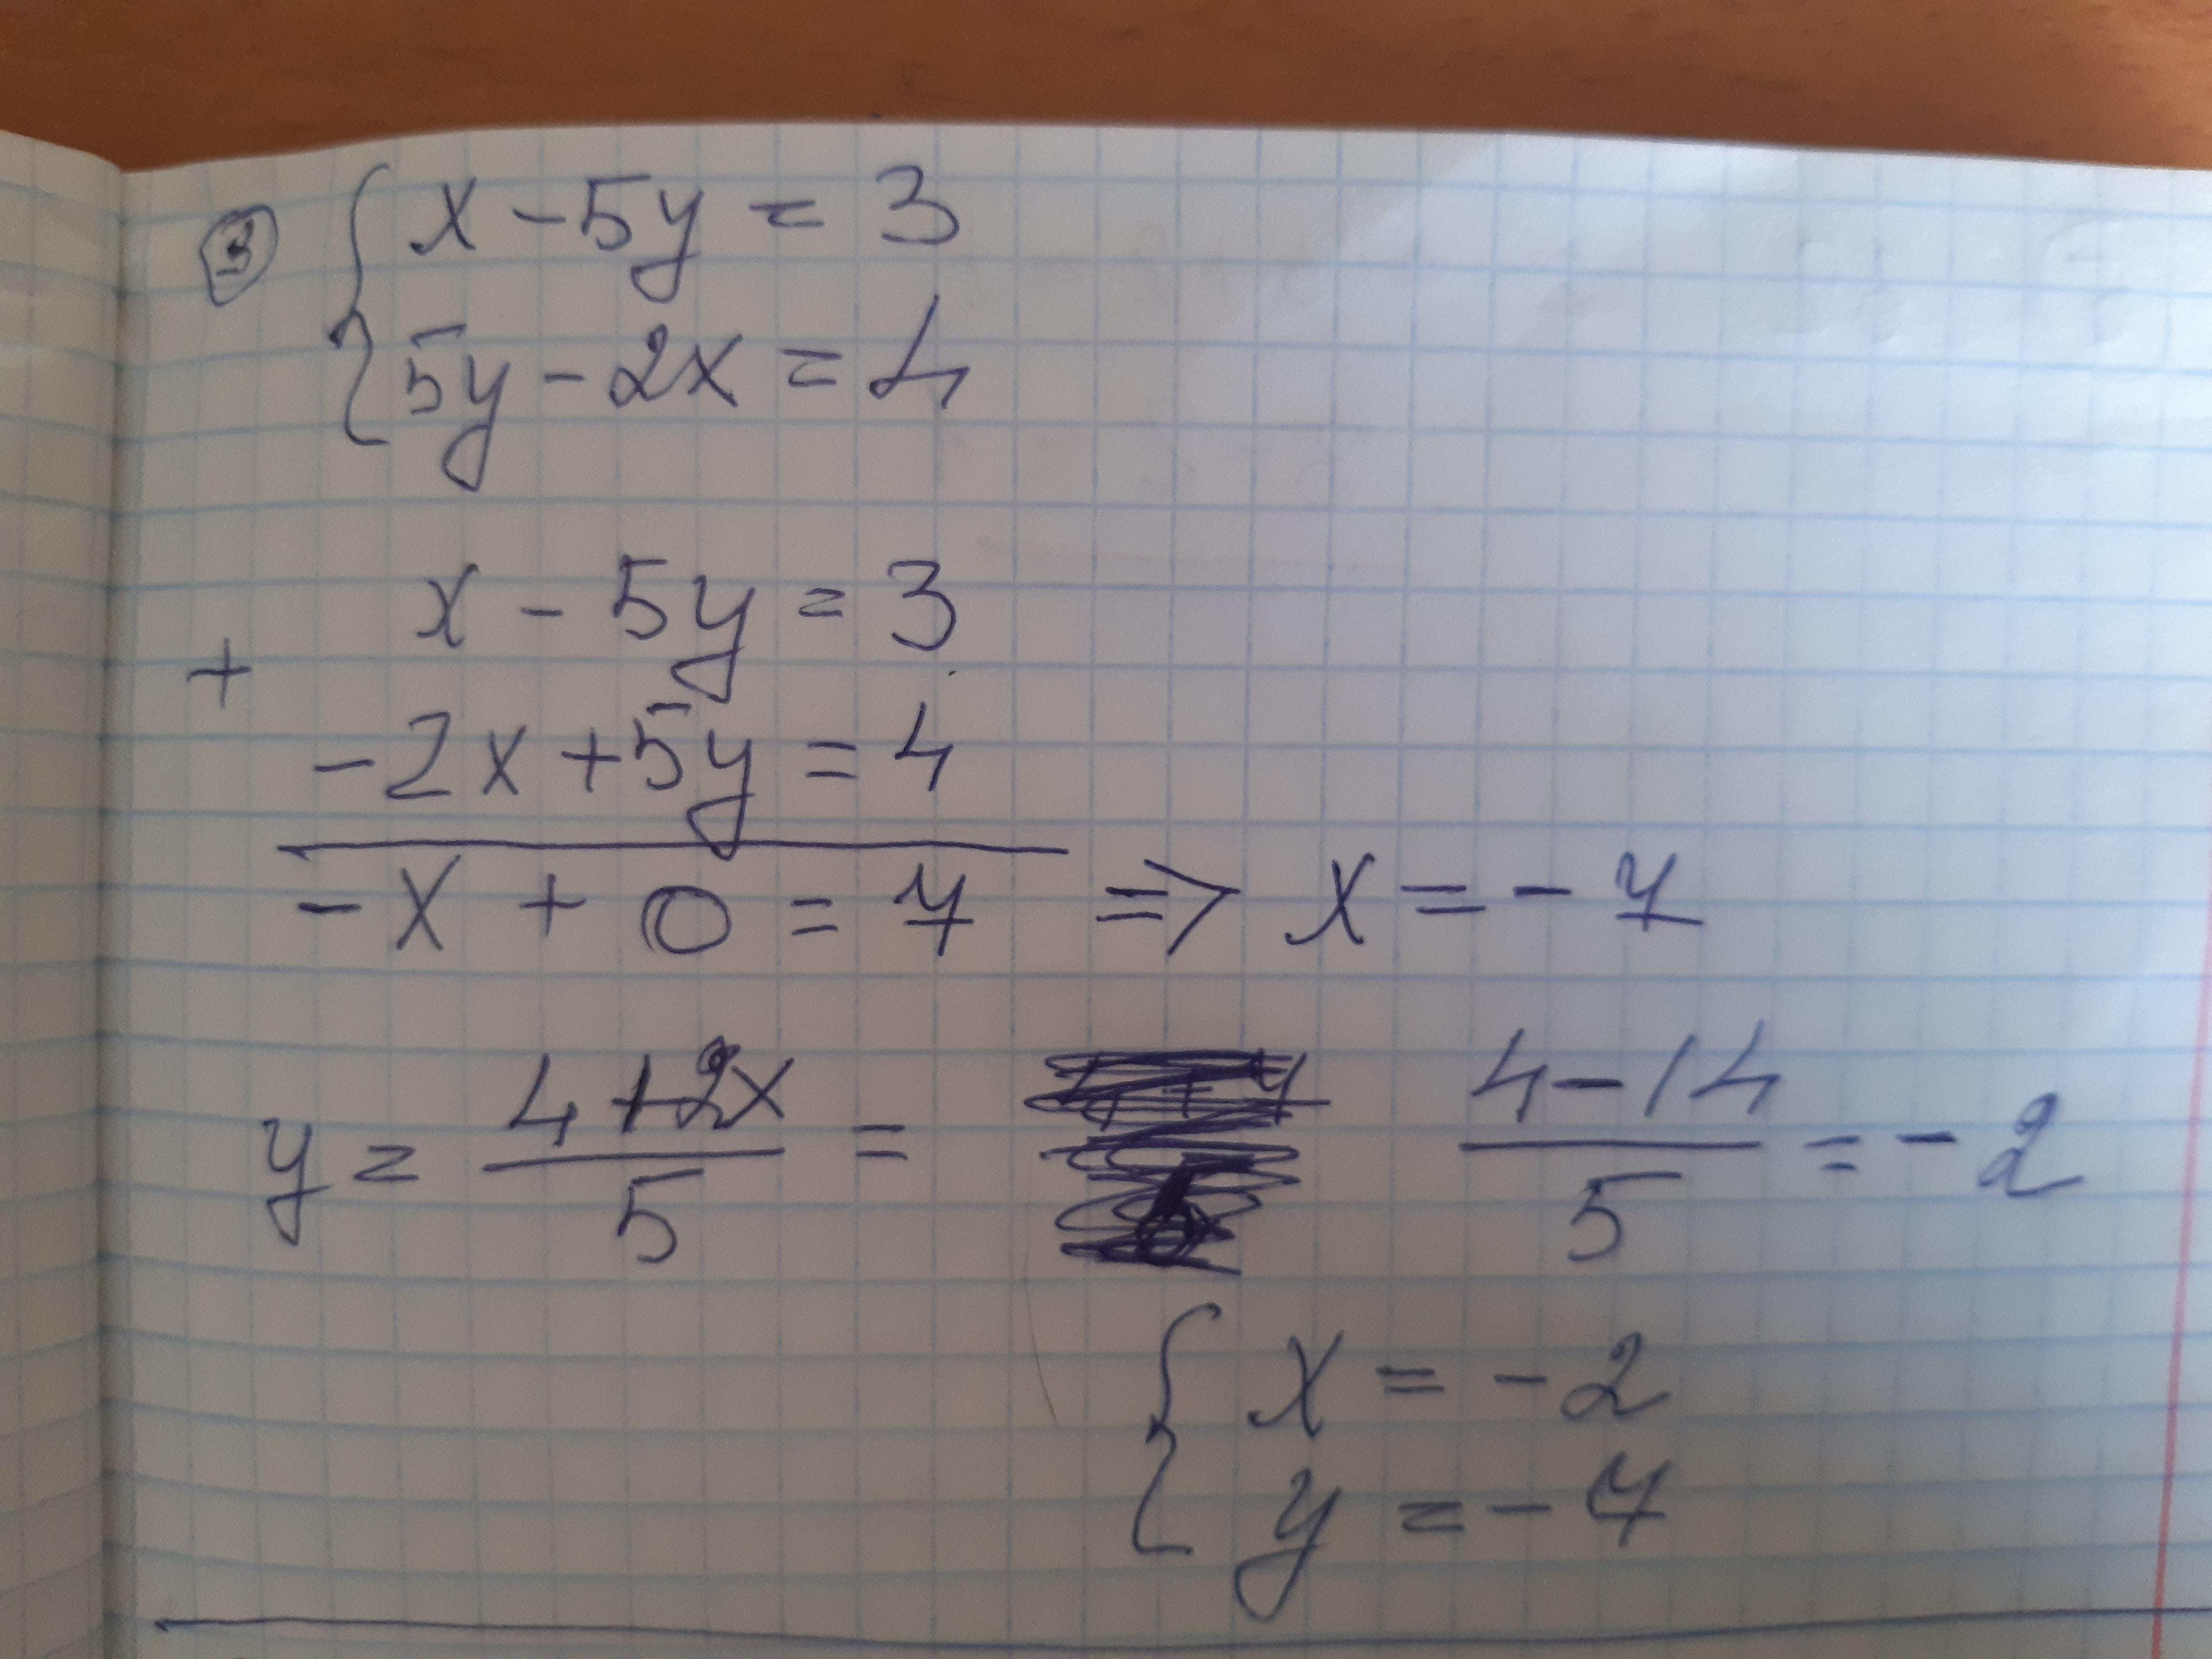 ③ { x - 5y = 3
5y - 2x = 4
x - 5y = 3
+
-2x + 5y = 4
-x + 0 = 7 => x = -7
y = (4+2x)/5 = (4-14)/5 = -2
{ x = -2
y = -7